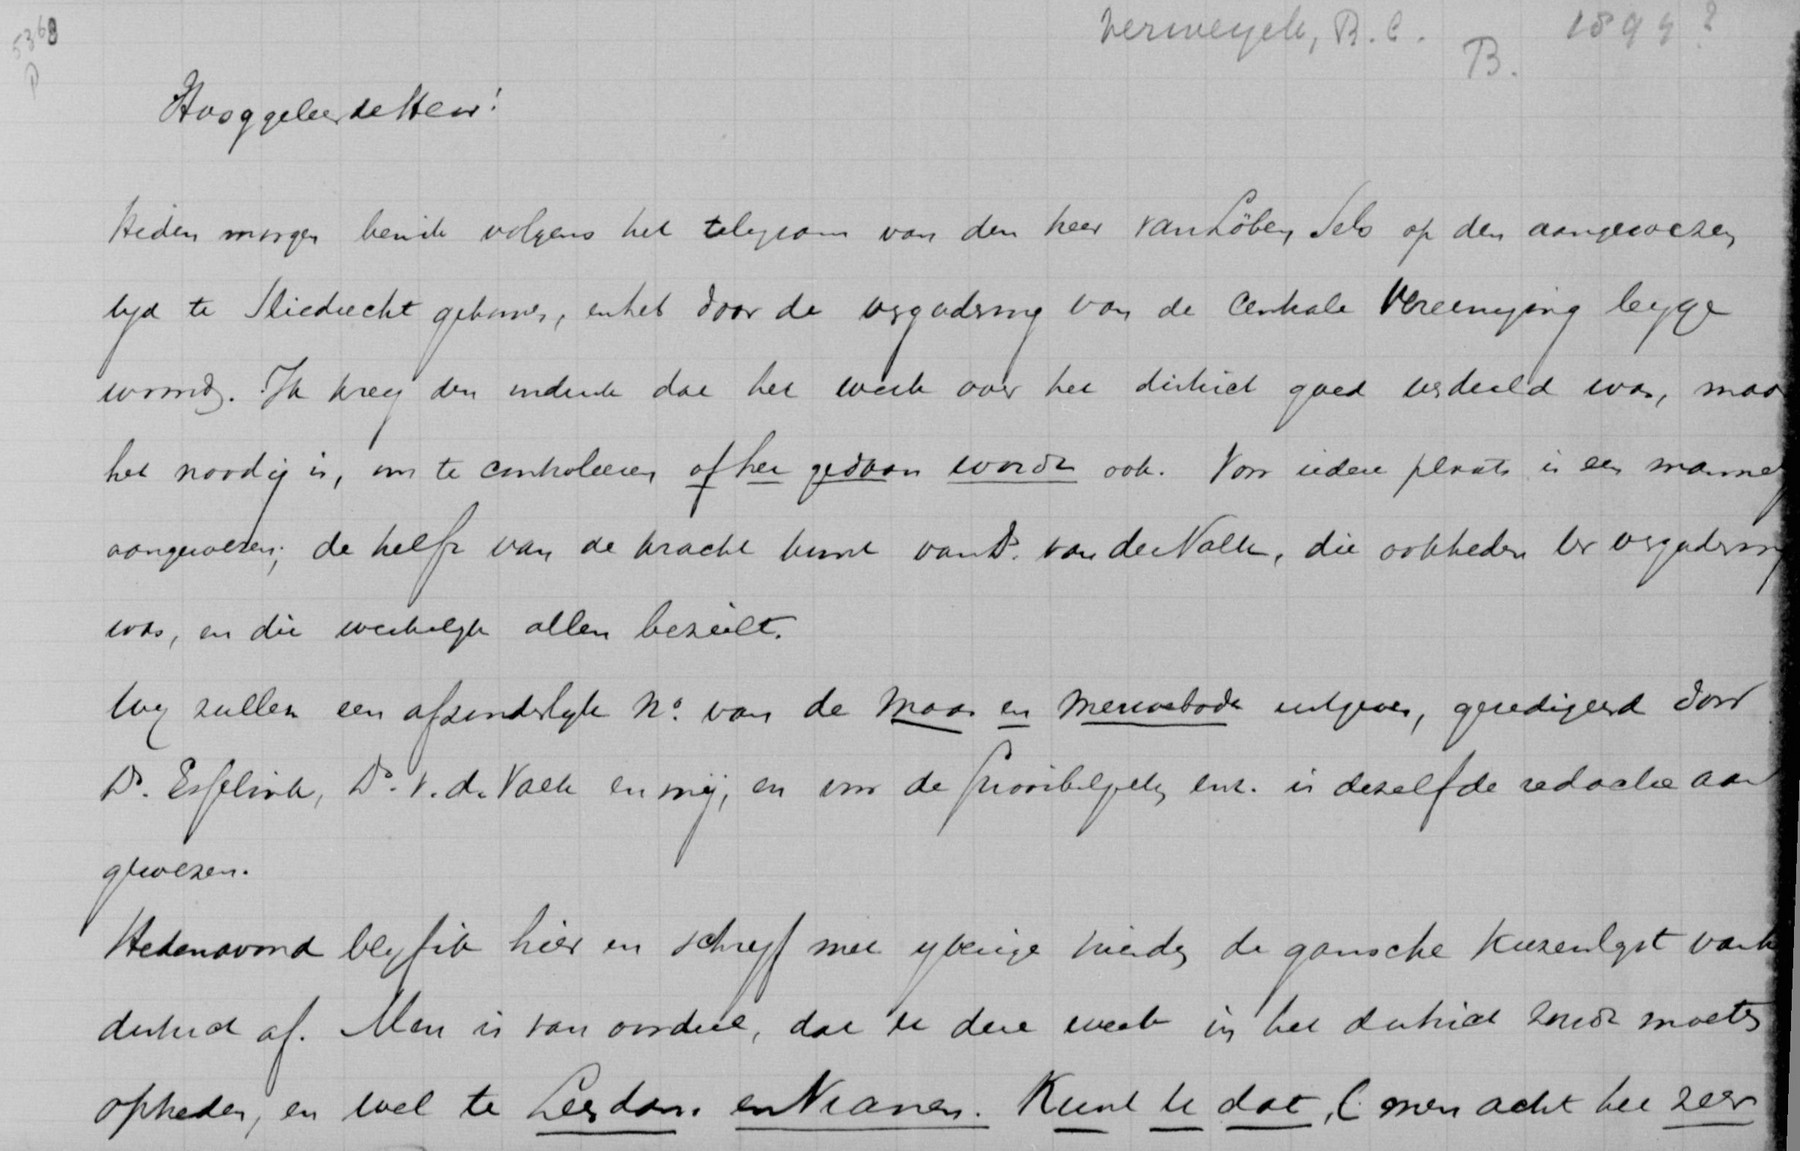 5368
D
Verweyck, B.C.
B.
1899?
Hooggeleerde Heer!
Heden morgen ben ik volgens het telegram van den heer van Löben Sels op den aangewezen
tijd te Sliedrecht gekomen, en heb door de vergadering van de Centrale Vereeniging
woond. Ik kreeg den indruk dat het werk over het district goed verdeeld was, maar
het noodig is, om te controleeren of het gedaan wordt ook. Voor iedere plaats is een
aangewezen; de helft van de kracht komt van Ds. van der Valk, die ook heden ter vergadering
was, en die werkelijk allen bezielt.
Wij zullen een afzonderlijk No. van de Maas en Merwebode uitgeven, geredigeerd door
Ds. Esselink, Ds. v. d. Valk en mij, en voor de strooibiljetten enz. is dezelfde redactie aan
gewezen.
Hedenavond blijf ik hier en schrijf met ijverige vrienden de gansche kiezerslijst van het
district af. Men is van oordeel, dat U deze week in het district zoudt moeten
optreden, en wel te Leerdam en Vianen. Kunt U dat, (men acht het zeer